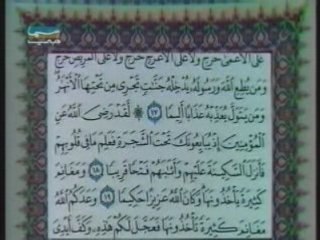 عَلَى ٱلْأَعْمَىٰ حَرَجٌ وَلَا عَلَى ٱلْأَعْرَجِ حَرَجٌ وَلَا عَلَى ٱلْمَرِيضِ حَرَجٌ
وَمَن يُطِعِ ٱللَّهَ وَرَسُولَهُۥ يُدْخِلْهُ جَنَّٰتٍ تَجْرِى مِن تَحْتِهَا ٱلْأَنْهَٰرُ
وَمَن يَتَوَلَّ يُعَذِّبْهُ عَذَابًا أَلِيمًا ١٧ لَّقَدْ رَضِىَ ٱللَّهُ عَنِ
ٱلْمُؤْمِنِينَ إِذْ يُبَايِعُونَكَ تَحْتَ ٱلشَّجَرَةِ فَعَلِمَ مَا فِى قُلُوبِهِمْ
فَأَنزَلَ ٱلسَّكِينَةَ عَلَيْهِمْ وَأَثَٰبَهُمْ فَتْحًا قَرِيبًا ١٨ وَمَغَانِمَ
كَثِيرَةً يَأْخُذُونَهَا وَكَانَ ٱللَّهُ عَزِيزًا حَكِيمًا ١٩ وَعَدَكُمُ ٱللَّهُ
مَغَانِمَ كَثِيرَةً تَأْخُذُونَهَا فَعَجَّلَ لَكُمْ هَٰذِهِۦ وَكَفَّ أَيْدِىَ